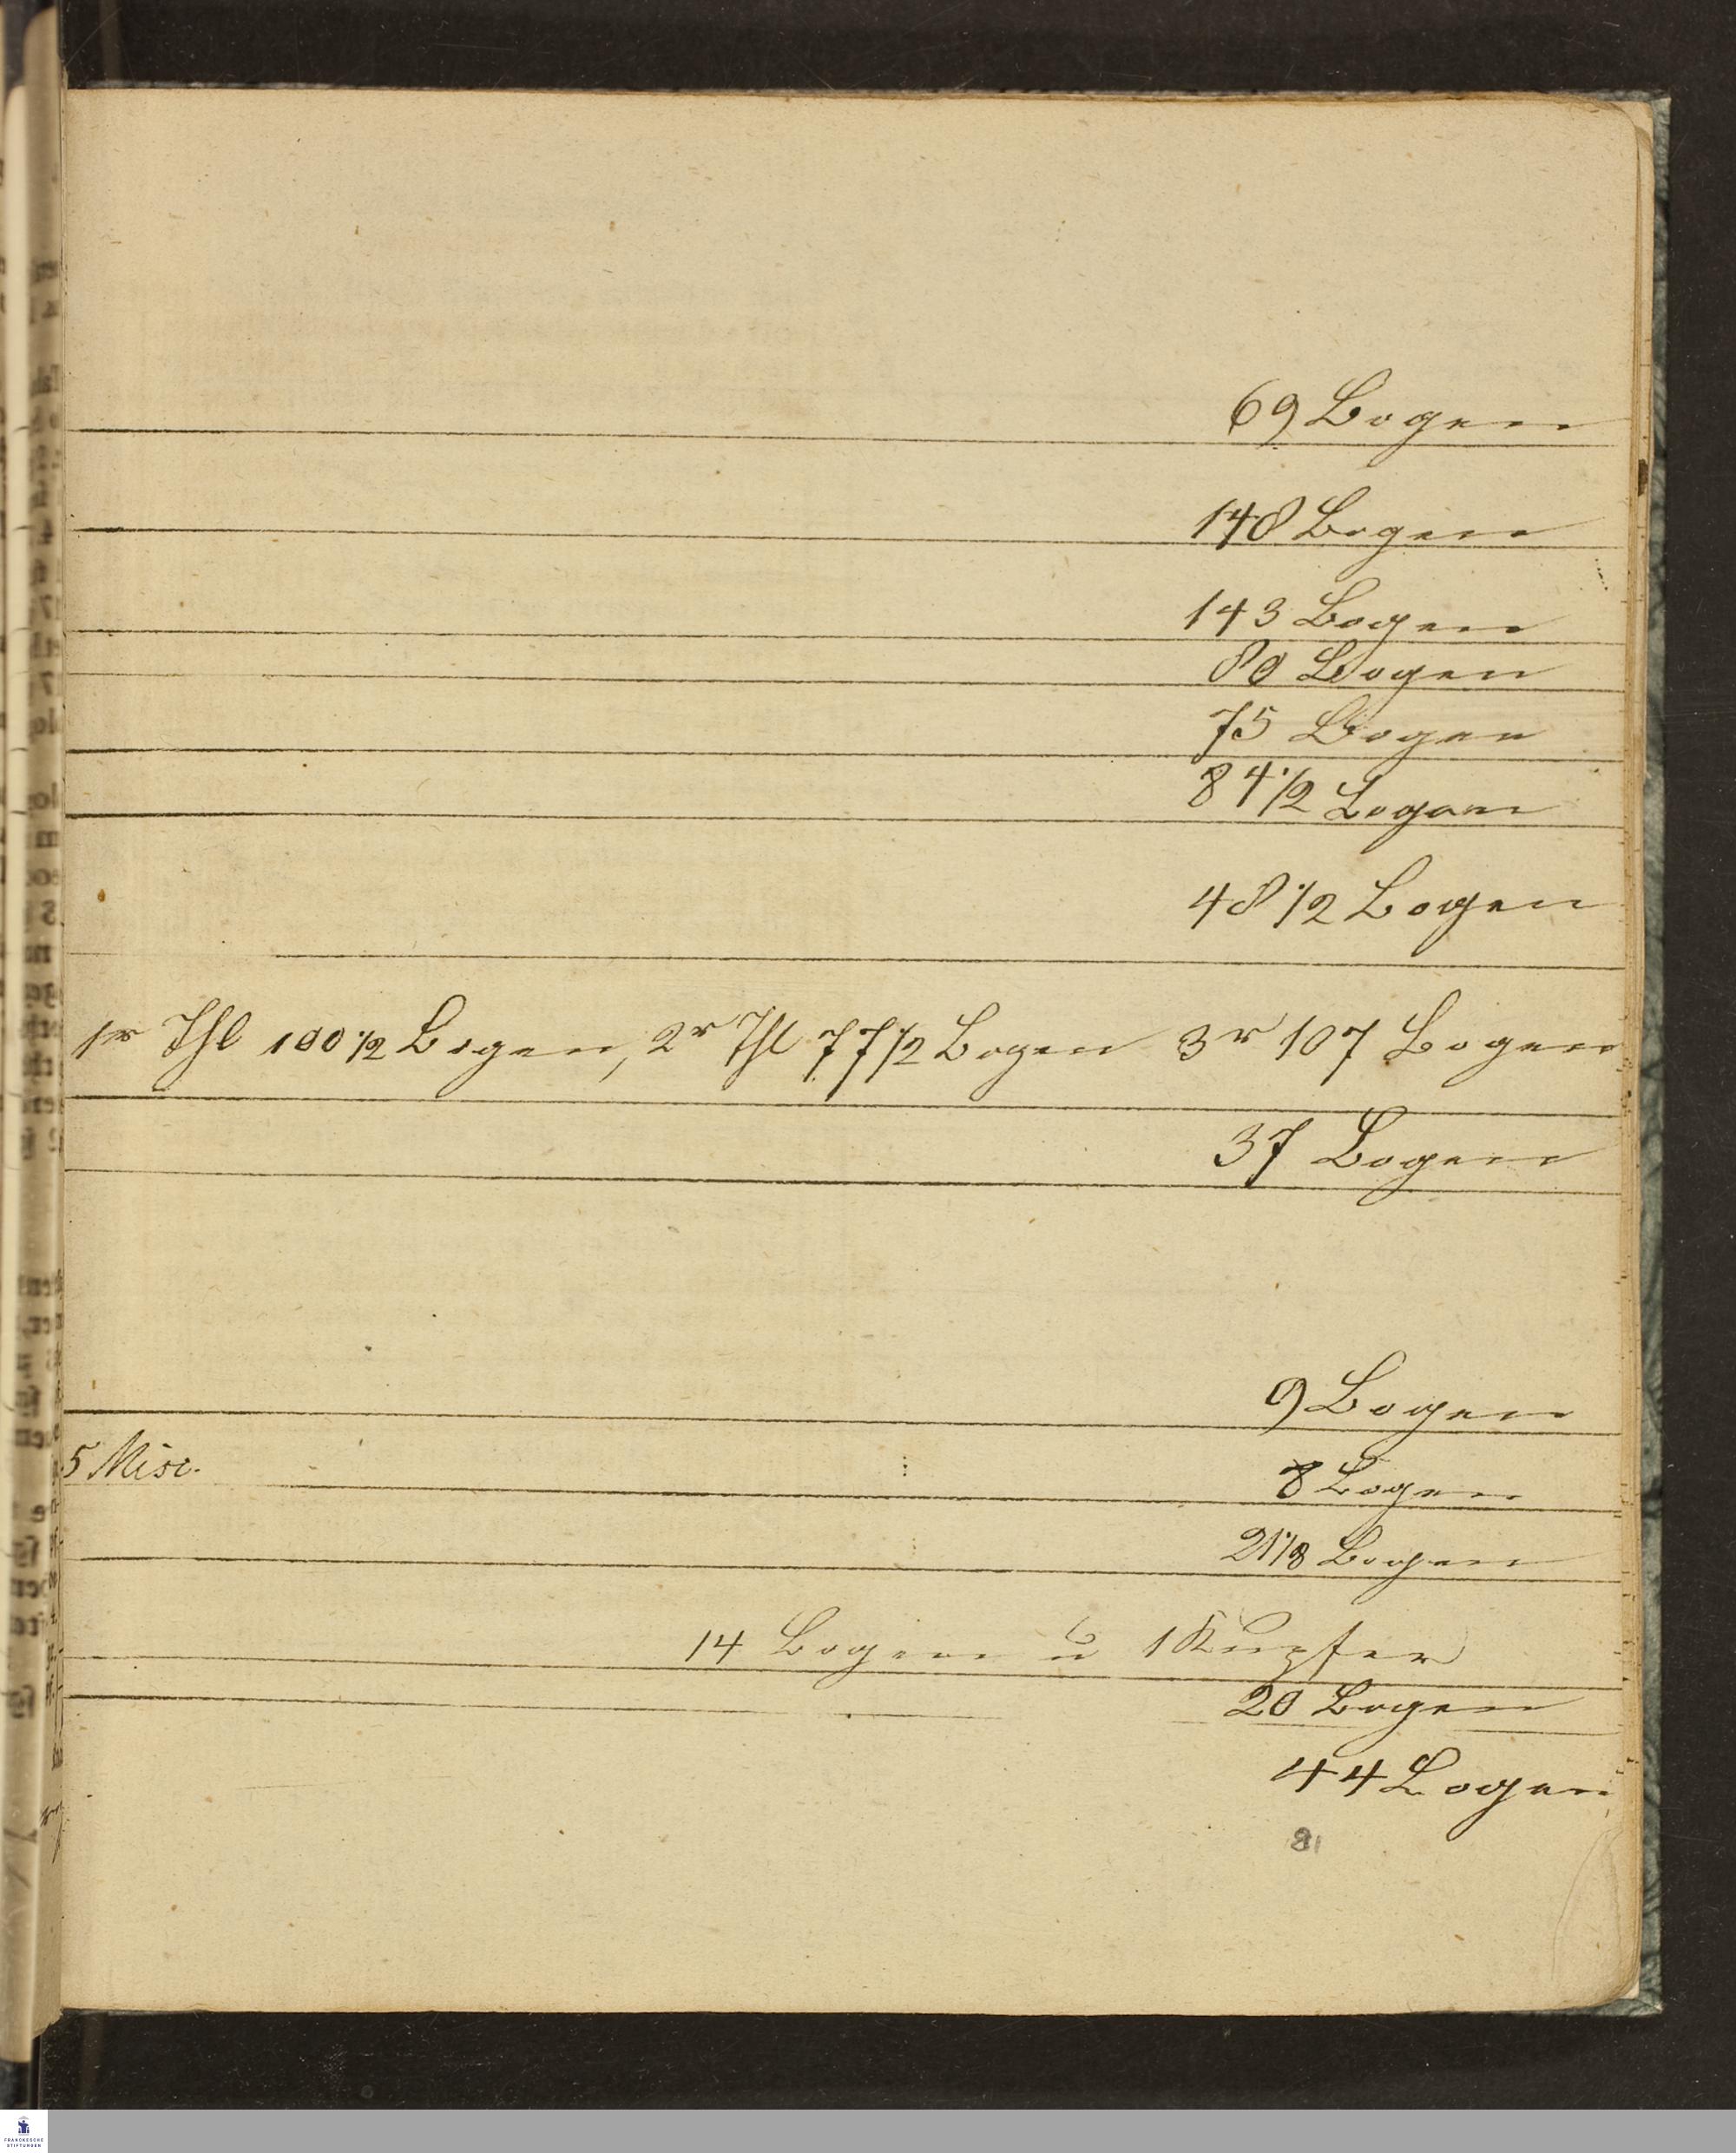 69 Bogen
148 Bogen
143 Bogen
80 Bogen
75 Bogen
84 1/2 Bogen
48 1/2 Bogen
1r Thl 100 1/2 Bogen, 2r Thl 77 1/2 Bogen 3r 107 Bogen
37 Bogen
9 Bogen
5 Misc.
8 Bogen
21 1/8 Bogen
14 Bogen u 1 Kupfer
20 Bogen
44 Bogen
81
FRANCKESCHE
STIFTUNGEN